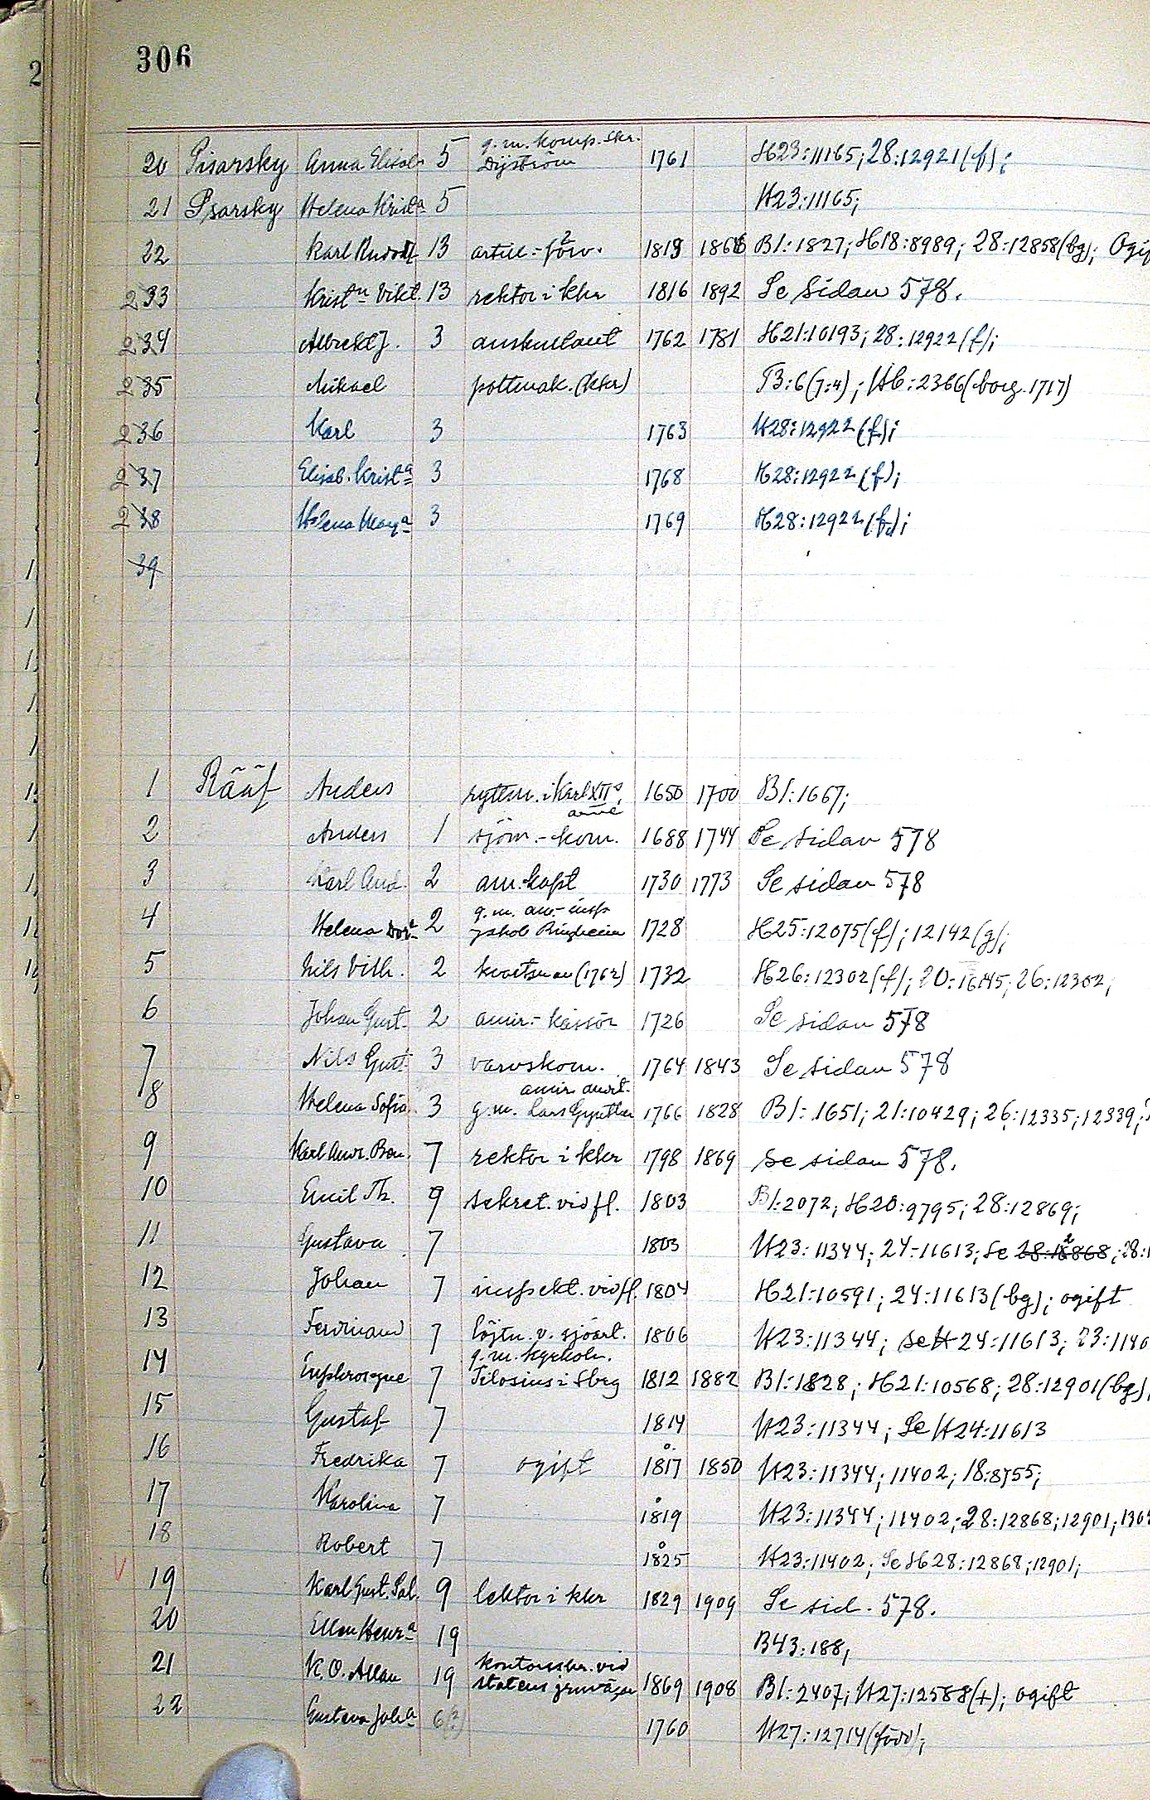 306
20 Pisarsky Anna Elisab 5 g.m. komp.skr. Dijström 1761 H23:11165; 28:12921(f);
21 Psarsky Helena Krista 5 H23:11165;
22 Karl Rudolf 13 artill.-förv. 1818 1866 B1:1827; H18:8989; 28:12858(bg); Ogif
23 Kristn Vikt. 13 rektor i kkr 1816 1892 Se sidan 578.
24 Albrekt J. 3 auskultant 1762 1781 H21:10193; 28:12922(f);
25 Mikael pottmak. (kkr) T3:6(7:4); H6:2366(borg. 1717)
26 Karl 3 1763 H28:12922(f);
27 Elisab. Krista 3 1768 H28:12922(f);
28 Helena Marga 3 1769 H28:12922(f);
39
1 Rääf Anders ryttm. i Karl XIIs armé 1650 1700 B1:1667;
2 Anders 1 sjöm.-kom. 1688 1744 Se sidan 578
3 Karl And. 2 am.kapt 1730 1773 Se sidan 578
4 Helena Dora 2 g.m. am.-insp Jakob 1728 H25:12075(f); 12142(g);
5 Nils Vilh. 2 (1762) 1732 H26:12302(f); 20:; 26:12302;
6 Johan Gust. 2 amir.-kassör 1726 Se sidan 578
7 Nils Gust. 3 varvskom. 1764 1843 Se sidan 578
8 Helena Sofia 3 g.m. amir Lars 1766 1828 B1:1651; 21:10429; 26:12335; 12339;
9 Karl Andr. Ben. 7 rektor i kkr 1798 1869 se sidan 578.
10 Emil Th. 9 sekret. vid fl. 1803 B1:2072; H20:9795; 28:12869;
11 Gustava 7 1803 H23:11344; 24:11613; se 28:12868; 28:1
12 Johan 7 inspekt. vid fl. 1804 H21:10591; 24:11613(bg); ogift
13 Ferdinand 7 löjtn. v. sjöart. 1806 H23:11344; se H24:11613; 23:1140
14 Euphrosyne 7 g.m. kyrkoh. Filosius i Sbrg 1812 1882 B1:1828; H21:10568; 28:12901(bg);
15 Gustaf 7 1814 H23:11344; Se H24:11613
16 Fredrika 7 ogift 1817 1850 H23:11344; 11402; 18:8755;
17 Karolina 7 1819 H23:11344; 11402; 28:12868; 12901; 130
18 Robert 7 1825 H23:11402; Se H28:12868; 12901;
19 Karl Gust. Sal. 9 lektor i kkr 1829 1909 Se sid. 578.
20 Ellen Henra 19 B43:188;
21 K.O. Allan 19 kontorsskr. vid statens järnvägar 1869 1908 B1:2407; H27:12588(+); ogift
22 Gustava Joha 6(?) 1760 H27:12714(född);